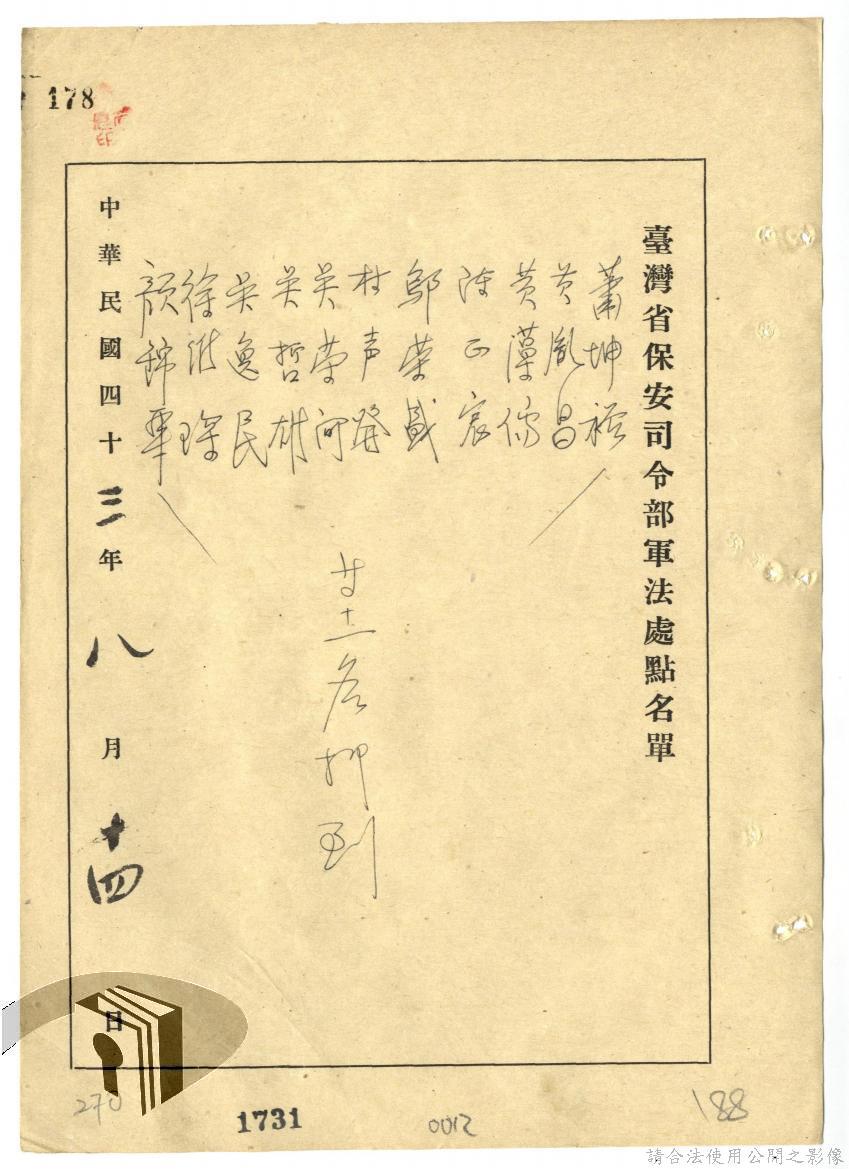 178
臺灣省保安司令部軍法處點名單
蕭坤裕
黃胤昌
黃漢儒
陳正宸
鄔榮盛
村声發
吳榮河
吳哲雄
吳逸民
徐湛琛
顏錦華
名押到
中華民國四十三年八月十四日
270
1731
0012
188
請合法使用公開之影像